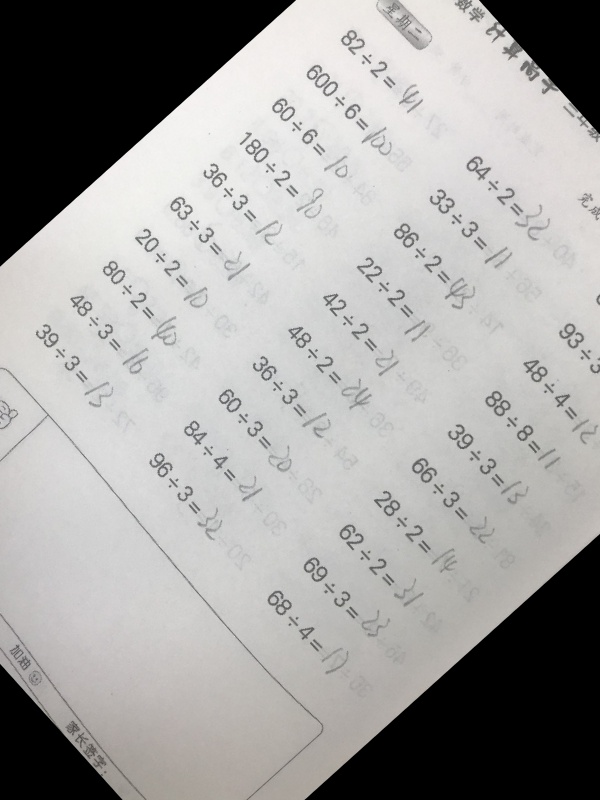 数学 计算高手
星期二
82÷2=41
600÷6=100
60÷6=10
180÷2=90
36÷3=12
63÷3=21
20÷2=10
80÷2=40
48÷3=16
39÷3=13
64÷2=32
33÷3=11
86÷2=43
22÷2=11
42÷2=21
48÷2=24
36÷3=12
60÷3=20
84÷4=21
96÷3=32
93÷3
48÷4=12
88÷8=11
39÷3=13
66÷3=22
28÷2=14
62÷2=31
69÷3=23
68÷4=17
加油
家长签字: